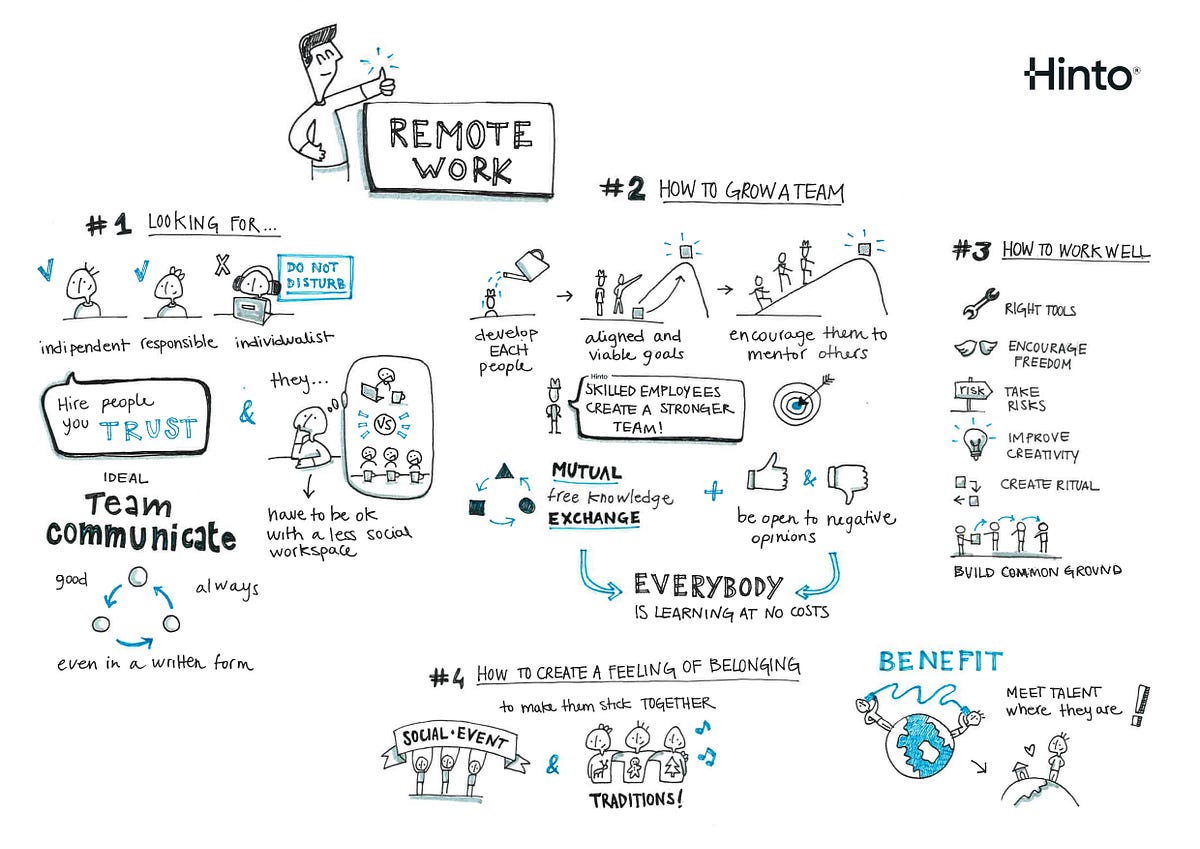 Hinto®
REMOTE
WORK
#1 LOOKING FOR...
DO NOT
DISTURB
indipendent responsible individualist
Hire people
you TRUST
&
they...
VS
have to be ok
with a less social
workspace
IDEAL
Team
communicate
good always
even in a written form
#2 HOW TO GROW A TEAM
develop
EACH
people
aligned and
viable goals
encourage them to
mentor others
Hinto
SKILLED EMPLOYEES
CREATE A STRONGER
TEAM!
MUTUAL
free knowledge
EXCHANGE
+
&
be open to negative
opinions
EVERYBODY
IS LEARNING AT NO COSTS
#3 HOW TO WORK WELL
RIGHT TOOLS
ENCOURAGE
FREEDOM
risk
TAKE
RISKS
IMPROVE
CREATIVITY
CREATE RITUAL
BUILD COMMON GROUND
#4 HOW TO CREATE A FEELING OF BELONGING
to make them stick TOGETHER
SOCIAL·EVENT
&
TRADITIONS!
BENEFIT
MEET TALENT
where they are !